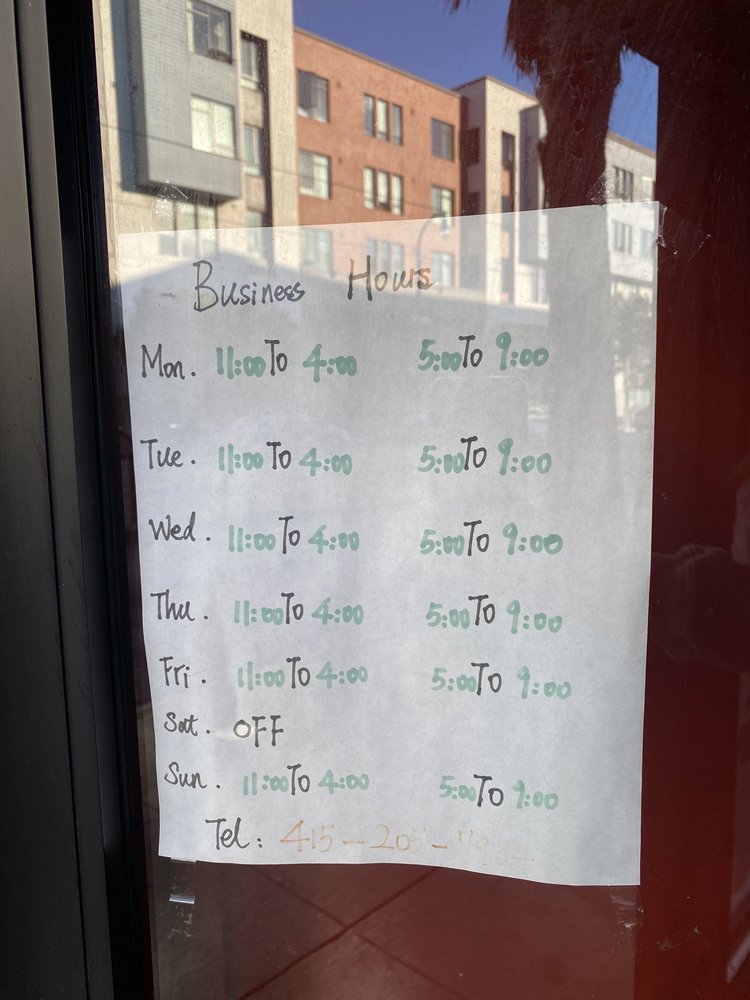 Business Hours
Mon. 11:00 To 4:00 5:00 To 9:00
Tue. 11:00 To 4:00 5:00 To 9:00
Wed. 11:00 To 4:00 5:00 To 9:00
Thu. 11:00 To 4:00 5:00 To 9:00
Fri. 11:00 To 4:00 5:00 To 9:00
Sat. OFF
Sun. 11:00 To 4:00 5:00 To 9:00
Tel: 415-